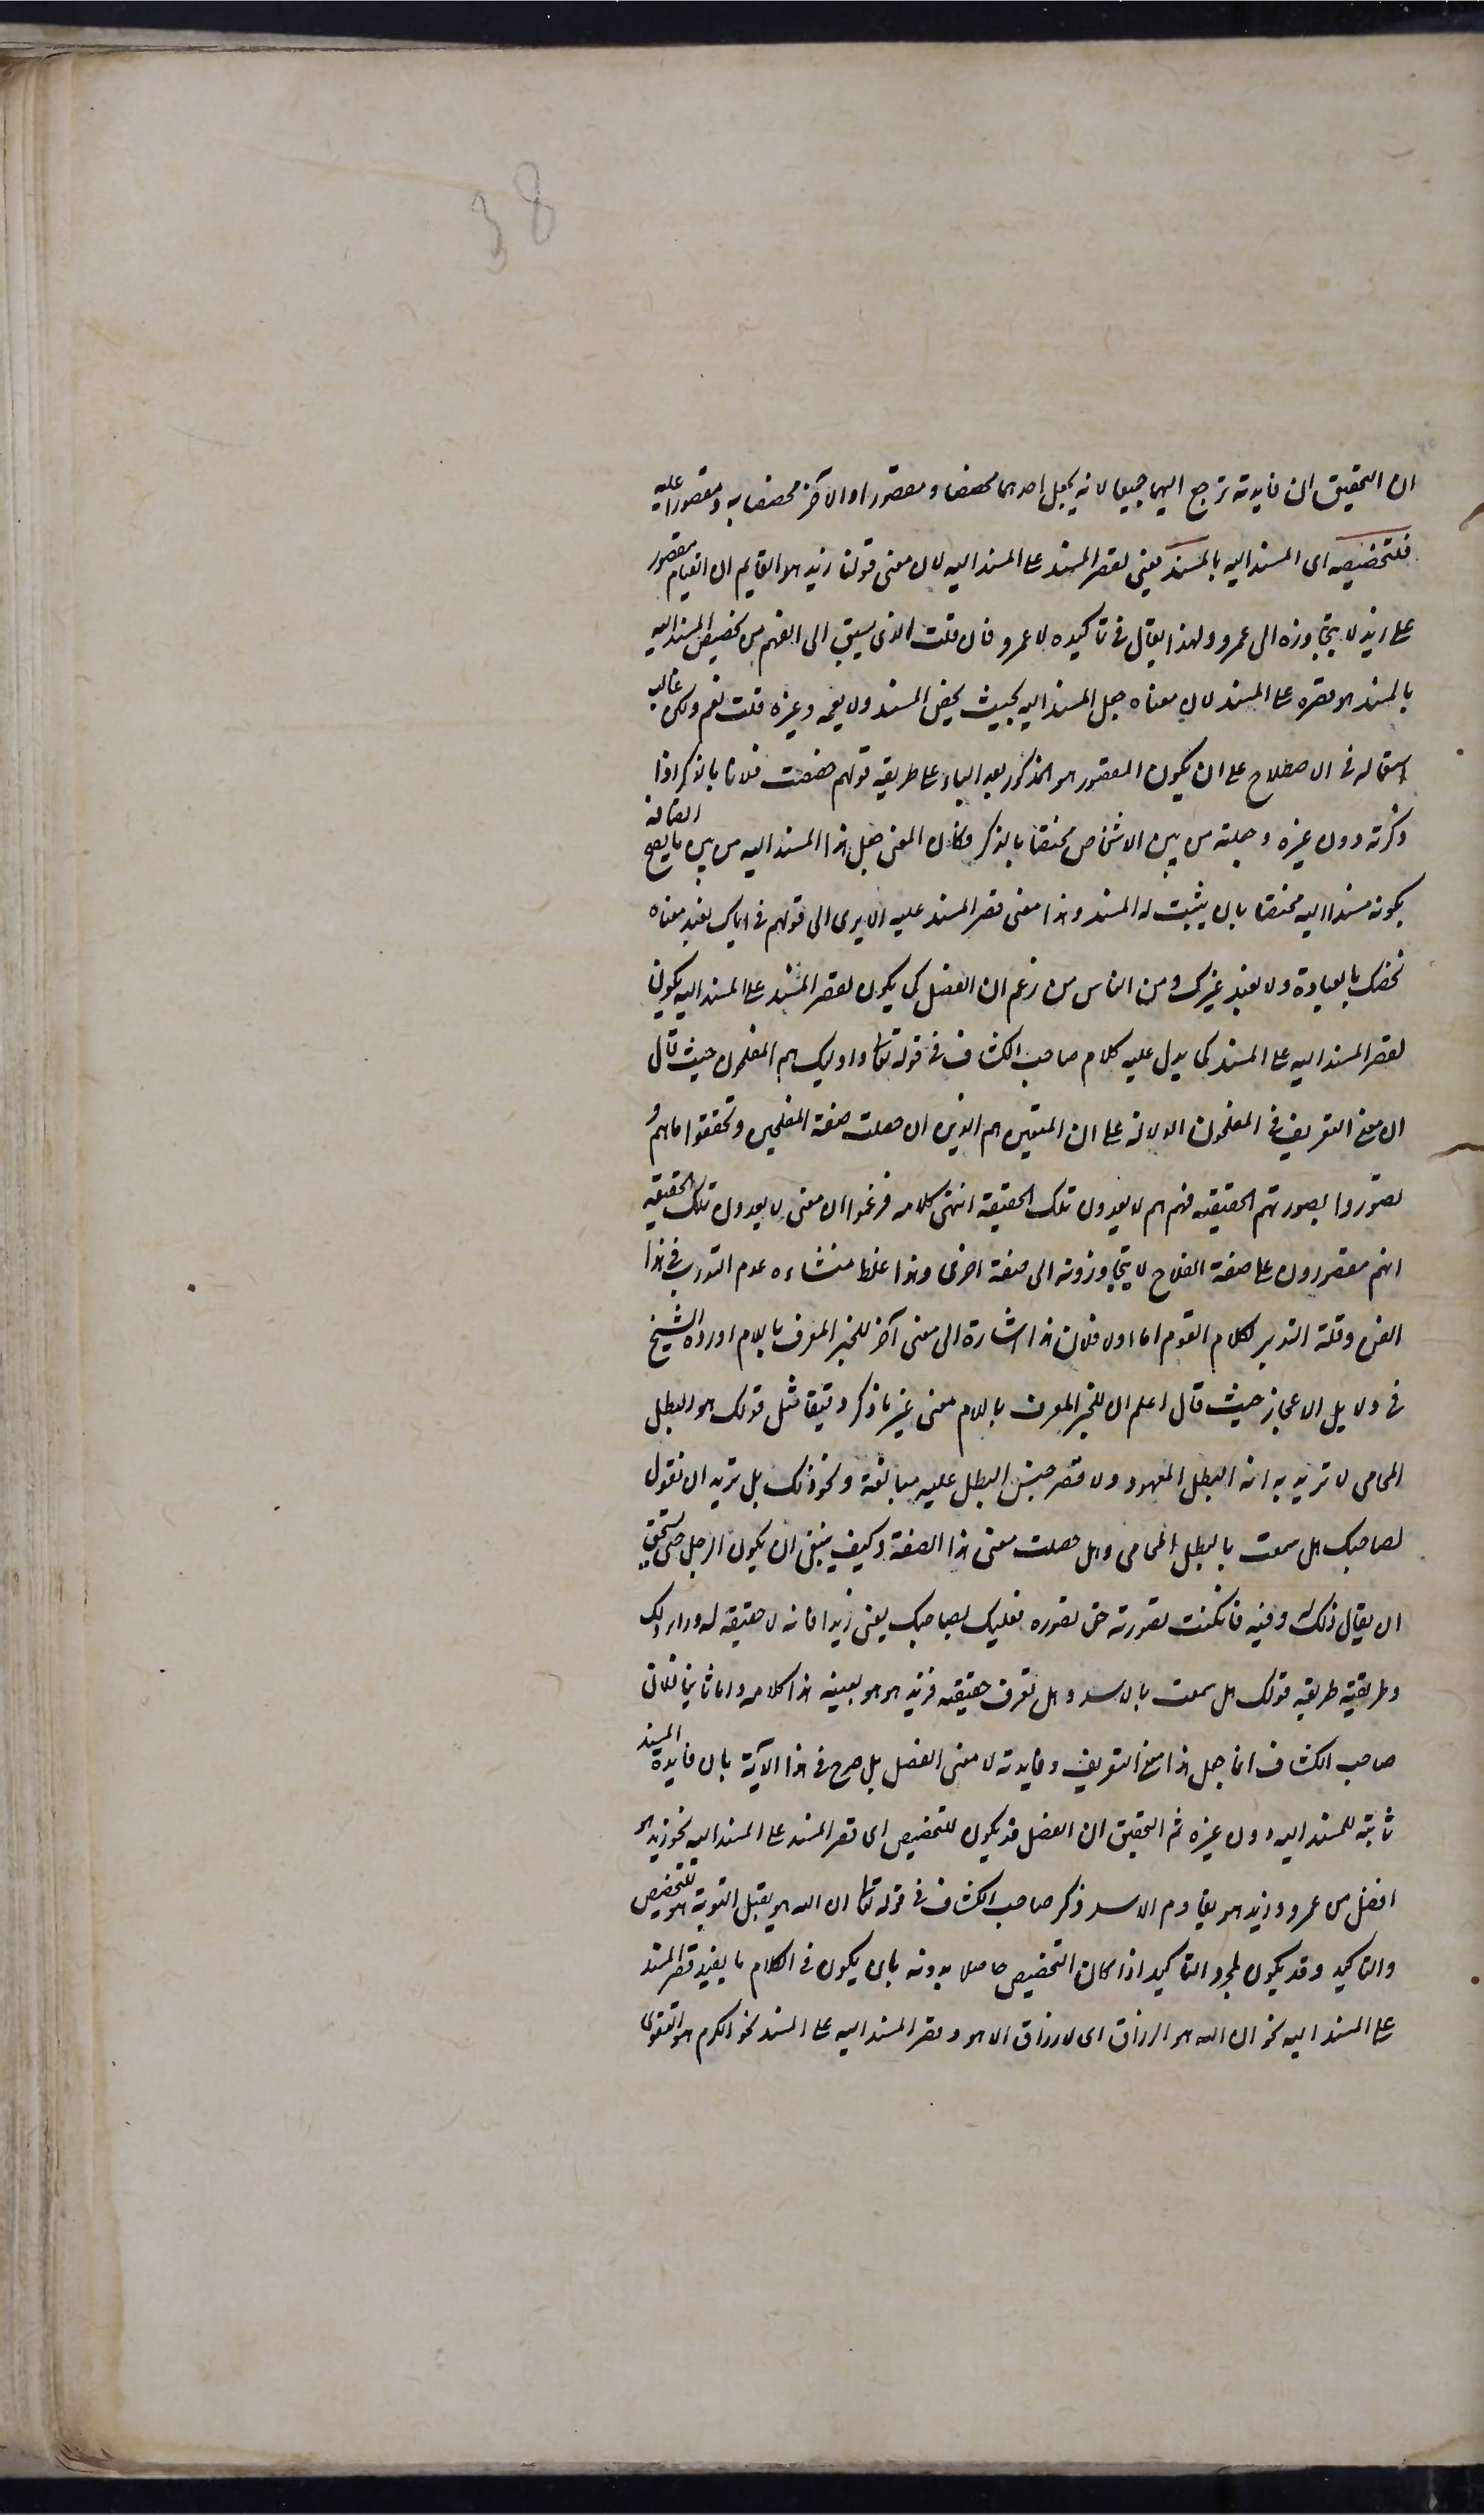 38
ان التحقيق ان فايدته ترجع اليهما جميعا لانه يجعل احدهما مخصصا ومقصورا والآخر مخصصا به ومقصورا عليه
فلتخصيصه اى المسند اليه بالمسند يعنى لقصر المسند على المسند اليه لان معنى قولنا زيد هو القايم ان القيام مقصور
على زيد لا يتجاوزه الى عمرو ولهذا يقال فى تاكيده لا عمرو فان قلت الذى يسبق الى الفهم من تخصيص المسند اليه
بالمسند هو قصره على المسند لان معناه جعل المسند اليه بحيث يخص المسند ولا يعمه وغيره قلت نعم ولكن غالب
استعماله فى الاصطلاح على ان يكون المقصور هو المذكور بعد الباء على طريقة قولهم خصصت فلانا بالذكر اذا
ذكرته دون غيره وجعلته من بين الاشخاص مختصا بالذكر فكان المعنى جعل هذا المسند اليه من بين ما يصح اتصافه
بكونه مسندا اليه مختصا بان يثبت له المسند وهذا معنى قصر المسند عليه الا يرى الى قولهم فى اياك نعبد معناه
نخصك بالعبادة ولا نعبد غيرك ومن الناس من زعم ان الفصل كما يكون لقصر المسند على المسند اليه يكون
لقصر المسند اليه على المسند كما يدل عليه كلام صاحب الكشاف فى قوله تعالى واوليك هم المفلحون حيث قال
ان معنى التعريف فى المفلحون الدلالة على ان المتقين هم الذين ان حصلت صفة المفلحين وتحققوا ما هم و
تصوروا بصورتهم الحقيقية فهم هم لا يعدون تلك الحقيقة انتهى كلامه فزعموا ان معنى لا يعدون تلك الحقيقة
انهم مقصورون على صفة الفلاح لا يتجاوزونه الى صفة اخرى وهذا غلط منشاءه عدم التدرب فى هذا
الفن وقلة التدبر لكلام القوم اما اولا فلان هذا اشارة الى معنى آخر للخبر المعرف باللام اورده الشيخ
فى دلايل الاعجاز حيث قال اعلم ان للخبر المعرف باللام معنى غير ما ذكر دقيقا مثل قولك هو البطل
المحامى لا تريد به انه البطل المعهود ولا قصر جنس البطل عليه مبالغة ونحو ذلك بل تريد ان تقول
لصاحبك هل سمعت بالبطل المحامى وهل حصلت معنى هذا الصفة وكيف ينبغى ان يكون الرجل حتى يستحق
ان يقال ذلك له وفيه فان كنت تصورته حق تصوره فعليك بصاحبك يعنى زيدا فانه لا حقيقة له وراء ذلك
وطريقته طريقة قولك هل سمعت بالاسد وهل تعرف حقيقته فزيد هو هو بعينه هذا كلامه واما ثانيا فلان
صاحب الكشاف انما جعل هذا معنى التعريف وفايدته لا معنى الفصل بل صرح فى هذا الآية بان فايدة المسند
ثابتة للمسند اليه دون غيره ثم التحقيق ان الفصل قد يكون للتخصيص اى قصر المسند على المسند اليه نحو زيد هو
افضل من عمرو وزيد هو يقاوم الاسد ذكر صاحب الكشاف فى قوله تعالى ان الله هو يقبل التوبة هو للتخصيص
والتاكيد وقد يكون لمجرد التاكيد اذا كان التخصيص حاصلا بدونه بان يكون فى الكلام ما يفيد قصر المسند
على المسند اليه نحو ان الله هو الرزاق اى لا رزاق الا هو وقصر المسند اليه على المسند نحو الكرم هو التقوى